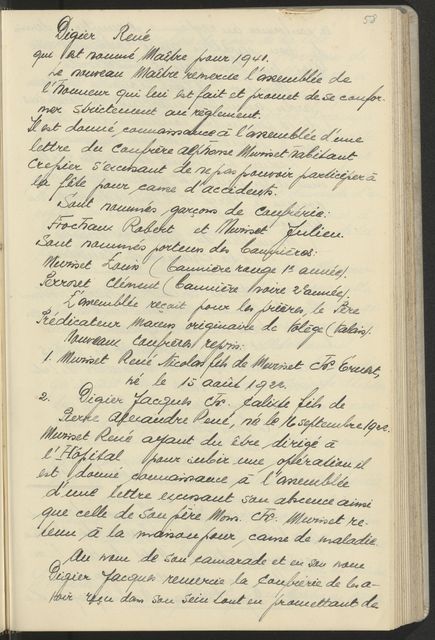 58
Digier René
qui est nommé Maître pour 1941.
Le nouveau Maître remercie l'assemblée de
l'honneur qui lui est fait et promet de se confor-
mer strictement au règlement.
Il est donné connaissance à l'assemblée d'une
lettre du confrère Alphonse Muriset habitant
Cressier s'excusant de ne pas pouvoir participer à
la fête pour cause d'accidents.
Sont nommés garçons de confrérie:
Frochaux Robert et Muriset Julien.
Sont nommés porteurs des bannières:
Muriset Louis (bannière rouge 1e année).
Perroset Clément (bannière noire 2e année).
L'assemblée reçoit pour les prières, le Père
Prédicateur originaire de (Valais).
Nouveaux confrères reçus:
1. Muriset René Nicolas fils de Muriset Chs Ernest,
né le 15 août 1922.
2. Digier Jacques Chs. Calixte fils de
Pierre Alexandre René, né le 16 septembre 1922.
Muriset René ayant du être dirigé à
l'Hôpital pour subir une opération il
est donné connaissance à l'assemblée
d'une lettre excusant son absence ainsi
que celle de son père Mons. Chs. Muriset re-
tenu à la maison pour cause de maladie
Au nom de son camarade et en son nom
Digier Jacques remercie la confrérie de les a-
voir reçu dans son sein tout en promettant de